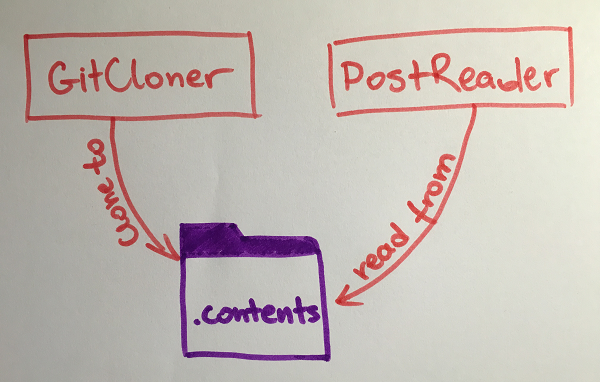 GitCloner
PostReader
Clone to
read from
.contents